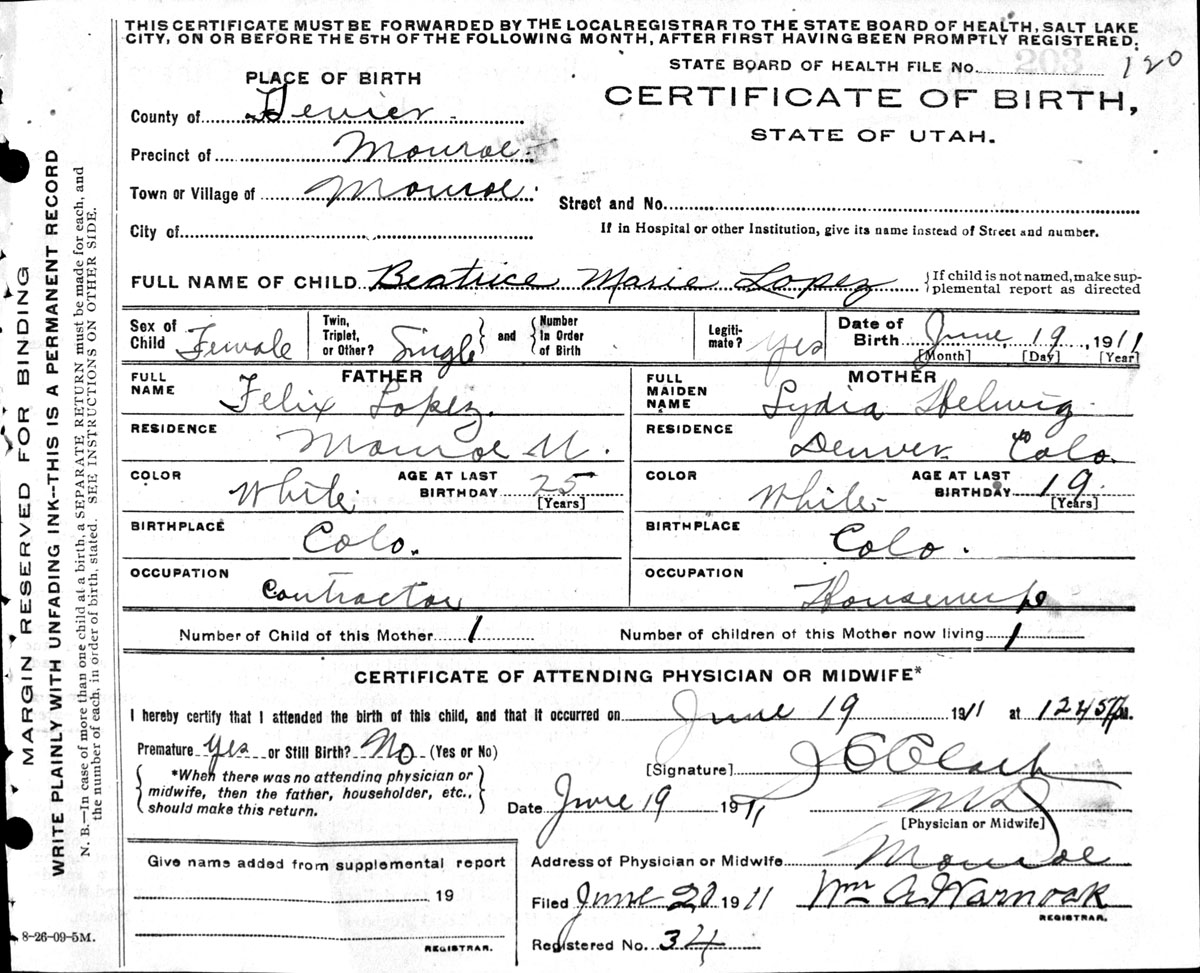 THIS CERTIFICATE MUST BE FORWARDED BY THE LOCAL REGISTRAR TO THE STATE BOARD OF HEALTH, SALT LAKE
CITY, ON OR BEFORE THE 5TH OF THE FOLLOWING MONTH, AFTER FIRST HAVING BEEN PROMPTLY REGISTERED.
STATE BOARD OF HEALTH FILE No. 203 120
PLACE OF BIRTH
CERTIFICATE OF BIRTH,
STATE OF UTAH.
County of Sevier
Precinct of Monroe
Town or Village of Monroe
Street and No.
City of
If in Hospital or other Institution, give its name instead of Street and number.
FULL NAME OF CHILD Beatrice Marie Lopez {If child is not named, make sup-
plemental report as directed
Sex of Child Female Twin, Triplet, or Other? Single and Number In Order of Birth Legiti-mate? Yes Date of Birth June 19, 1911
[Month] [Day] [Year]
FATHER MOTHER
FULL NAME Felix Lopez. FULL MAIDEN NAME Lydia Helwig
RESIDENCE Monroe U. RESIDENCE Denver Colo.
COLOR White AGE AT LAST BIRTHDAY 25 [Years] COLOR White AGE AT LAST BIRTHDAY 19 [Years]
BIRTHPLACE Colo. BIRTHPLACE Colo.
OCCUPATION Contractor OCCUPATION Housewife
Number of Child of this Mother 1 Number of children of this Mother now living 1
CERTIFICATE OF ATTENDING PHYSICIAN OR MIDWIFE*
I hereby certify that I attended the birth of this child, and that it occurred on June 19 1911 at 1245 P.m.
Premature Yes or Still Birth? No (Yes or No)
*When there was no attending physician or
midwife, then the father, householder, etc.,
should make this return.
[Signature] J C Clark
Date June 19 1911 M D
[Physician or Midwife]
Give name added from supplemental report
19
REGISTRAR.
Address of Physician or Midwife Monroe
Filed June 20 1911 Wm A Warnock
REGISTRAR.
Registered No. 34
8-26-09-5M.
MARGIN RESERVED FOR BINDING
WRITE PLAINLY WITH UNFADING INK--THIS IS A PERMANENT RECORD
N. B.—In case of more than one child at a birth, a SEPARATE RETURN must be made for each, and
the number of each, in order of birth, stated. SEE INSTRUCTIONS ON OTHER SIDE.